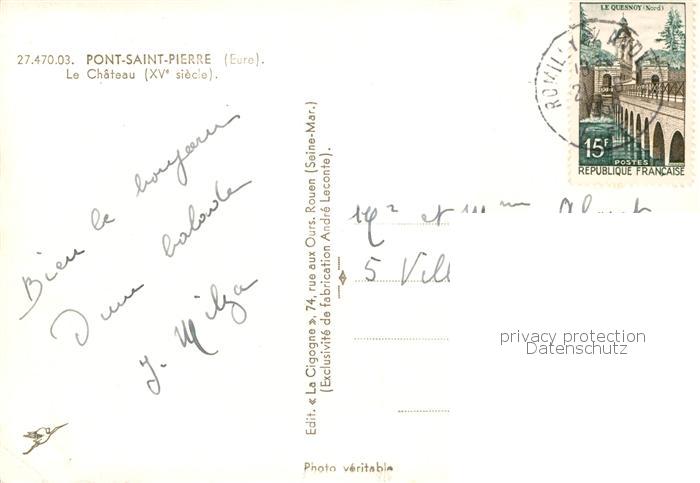 27.470.03. PONT-SAINT-PIERRE (Eure).
Le Château (XVᵉ siècle).
Bien le bonjour
D'une balade
J. Milza
Edit. « La Cigogne », 74, rue aux Ours. Rouen (Seine-Mar.)
(Exclusivité de fabrication André Leconte).
Photo véritable
LE QUESNOY (Nord)
15F
POSTES
REPUBLIQUE FRANÇAISE
ROMILLY
Mr et Mme
5 Vill
privacy protection
Datenschutz